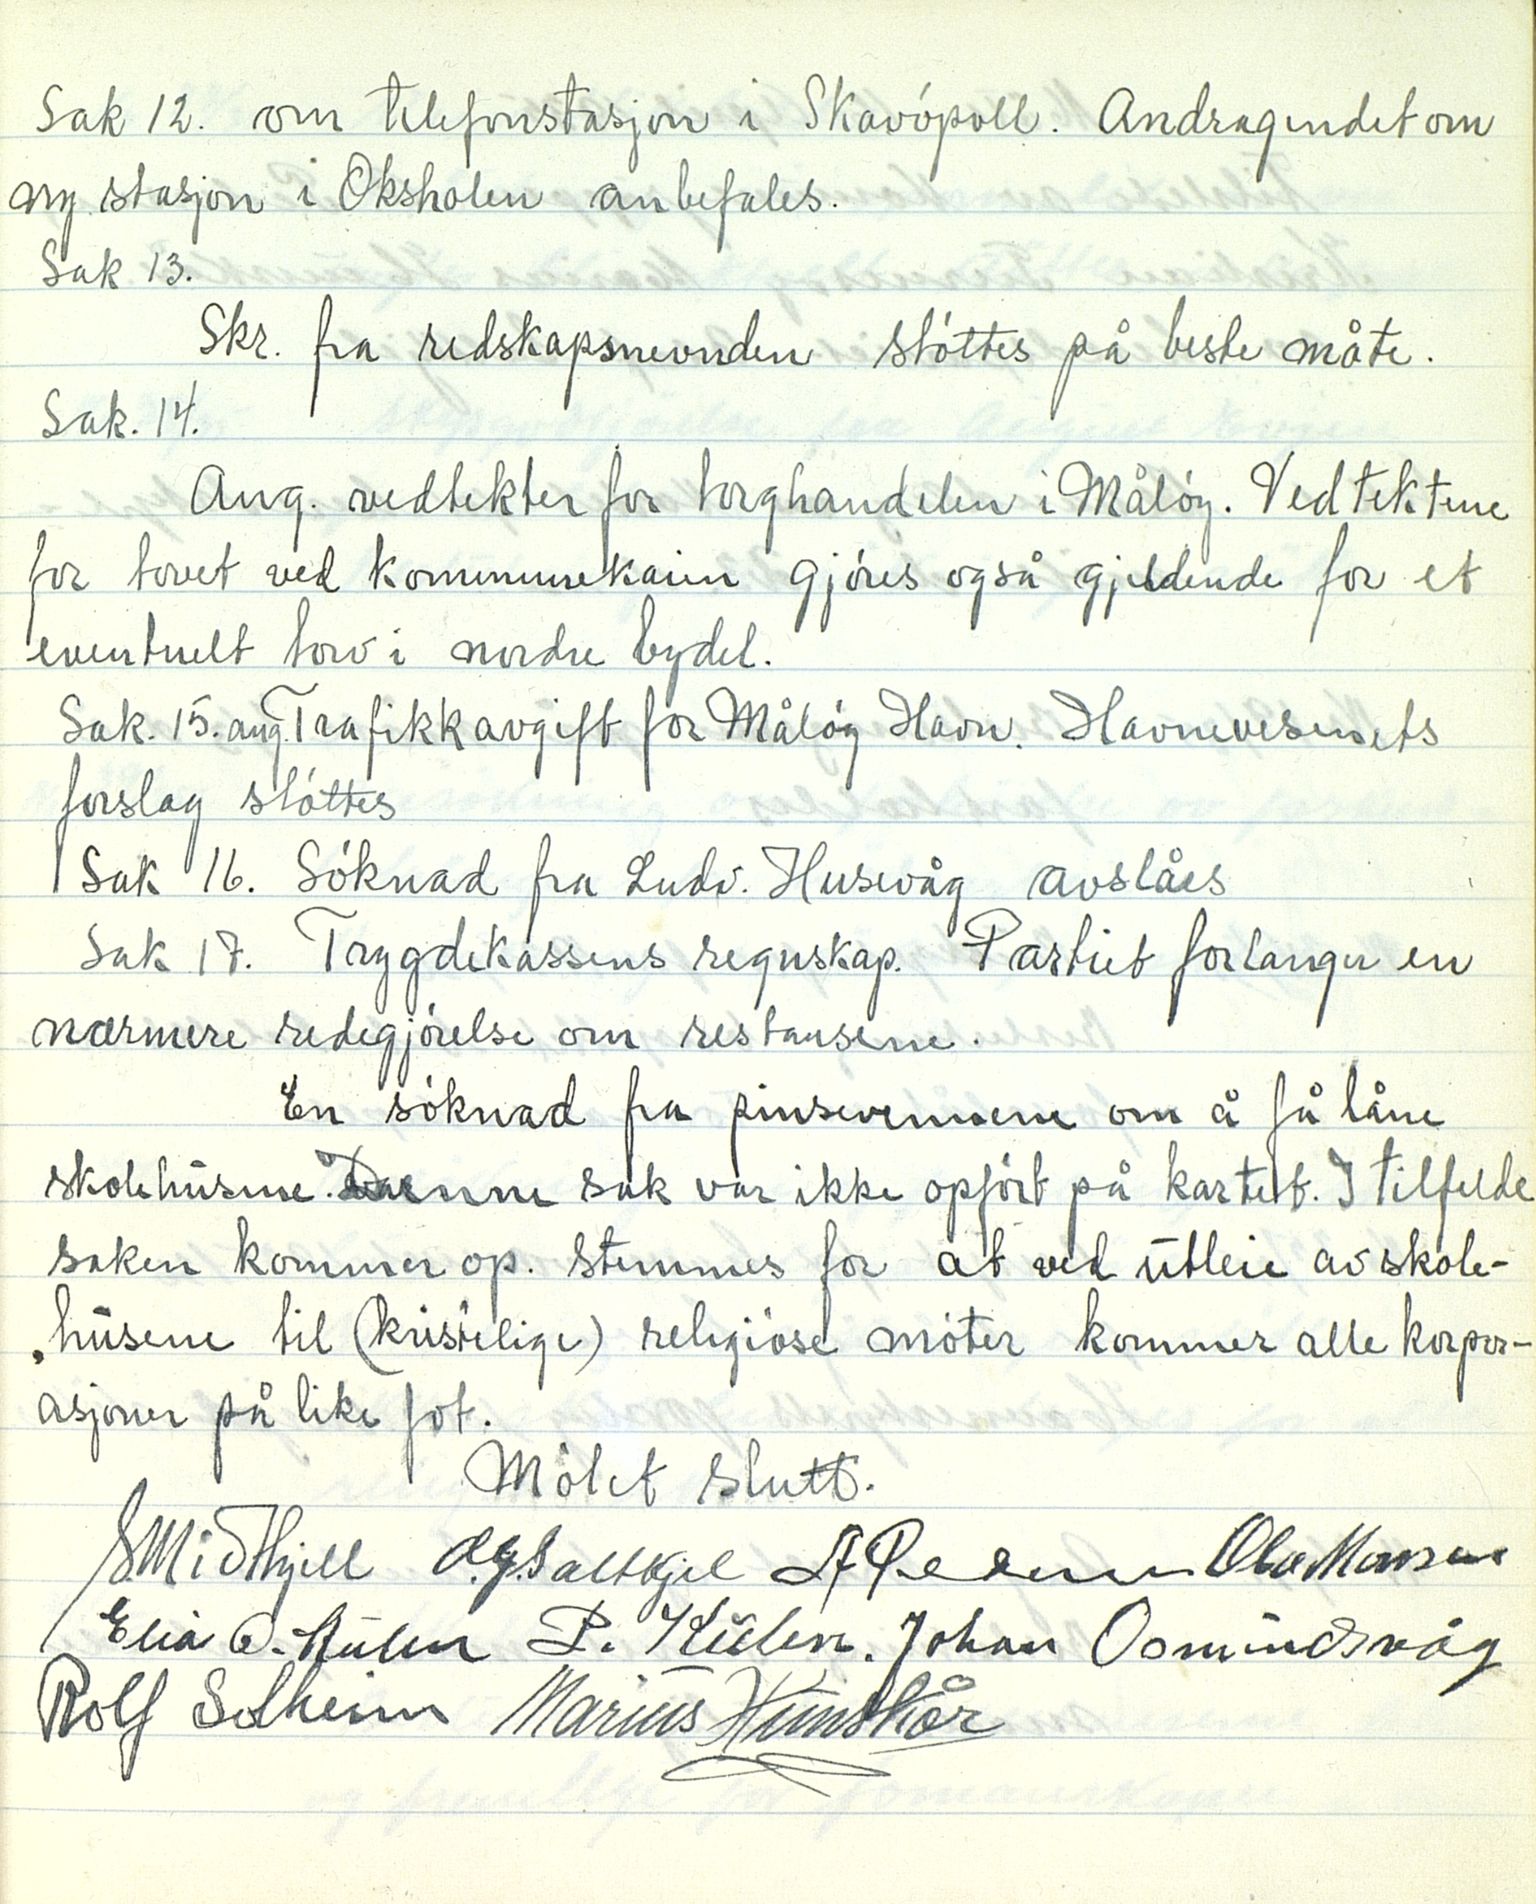 Sak 12. om telefonstasjon i Skavöpoll. Andragendet om
ny stasjon i Oksholen anbefales.
Sak 13.
Skr. fra redskapsnevnden stöttes på beste måte.
Sak. 14.
Ang. vedtekter for torghandelen i Målöy. Vedtektene
for torvet ved kommunekaien gjöres også gjeldende for et
eventuelt torv i nordre bydel.
Sak. 15. ang. Trafikkavgift for Målöy Havn. Havnevesenets
forslag stöttes
Sak 16. Söknad fra Ludv. Husevåg avslåes
Sak 17. Trygdekassens regnskap. Partiet forlanger en
nærmere redegjörelse om restansene.
En söknad fra pinsevennene om å få låne
skolehusene. Denne sak var ikke opfört på kartet. I tilfelde
saken kommer op. stemmes for at ved utleie av skole-
husene til (kristelige) religiöse möter kommer alle korpor-
asjoner på like fot.
Mötet slutt.
S. Midthjell O.G. Saltkjel A Pedersen Ola Monsen
Elia O. Kulen P. Kulen. Johan Osmundsvåg
Rolf Solheim Marius Hunskår